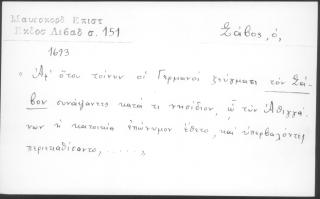 Μαυροκορδ Επιστ
Εκδοσ Λιβαδ σ. 151
Σάβος, ὁ,
1693
Ἀφ' ὅτου τοίνυν οἱ Γερμανοὶ ζεύγματι τὸν Σά-
βον συνάψαντες κατά τι νησίδιον, ᾧ τῶν Ἀθιγγά-
νων ἡ κατοικία ἐπώνυμον ἔθετο, καὶ ὑπερβαλόντες
περιεκαθίσαντο, . . . . . ,